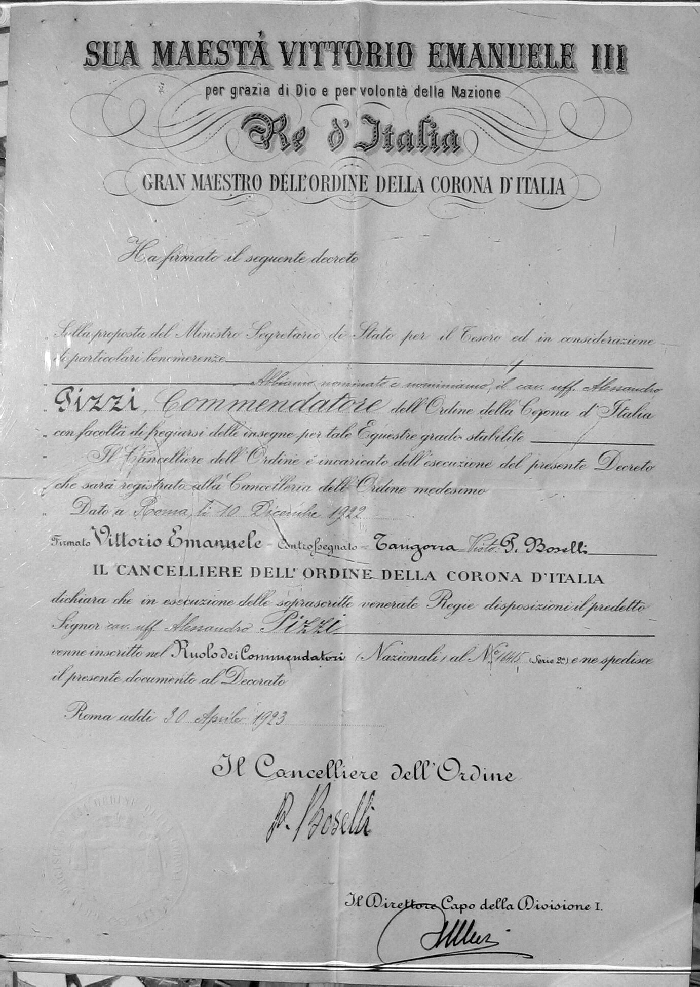 SUA MAESTÀ VITTORIO EMANUELE III
per grazia di Dio e per volontà della Nazione
Re d'Italia
GRAN MAESTRO DELL'ORDINE DELLA CORONA D'ITALIA
Ha firmato il seguente decreto
Sulla proposta del Ministro Segretario di Stato per il Tesoro ed in considerazione
di particolari benemerenze
Abbiamo nominato e nominiamo il cav. uff. Alessandro
Pizzi, Commendatore dell'Ordine della Corona d'Italia
con facoltà di fregiarsi delle insegne per tale Equestre grado stabilite
Il Cancelliere dell'Ordine è incaricato dell'esecuzione del presente Decreto
che sarà registrato alla Cancelleria dell'Ordine medesimo
Dato a Roma, li 10 Dicembre 1922
Firmato Vittorio Emanuele - Controssegnato = Tangorra Visto: P. Boselli
IL CANCELLIERE DELL'ORDINE DELLA CORONA D'ITALIA
dichiara che in esecuzione delle soprascritte venerate Regie disposizioni il predetto
Signor cav. uff. Alessandro Pizzi
venne inscritto nel Ruolo dei Commendatori (Nazionali) al N° (Serie 2a) e ne spedisce
il presente documento al Decorato
Roma addì 30 Aprile 1923
Il Cancelliere dell'Ordine
P. Boselli
Il Direttore Capo della Divisione I.